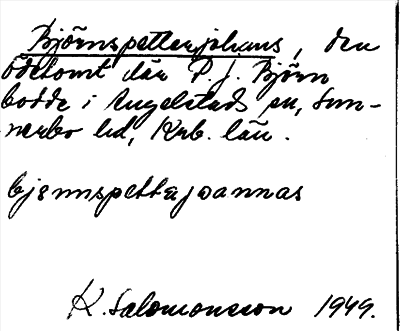 Björnspetterjohans, den
ödetomt där P. J. Björn
bodde i Angelstads sn, Sun-
nerbo hd, Krb. län.
bjennspettarjoannas
K. Salomonsson 1949.